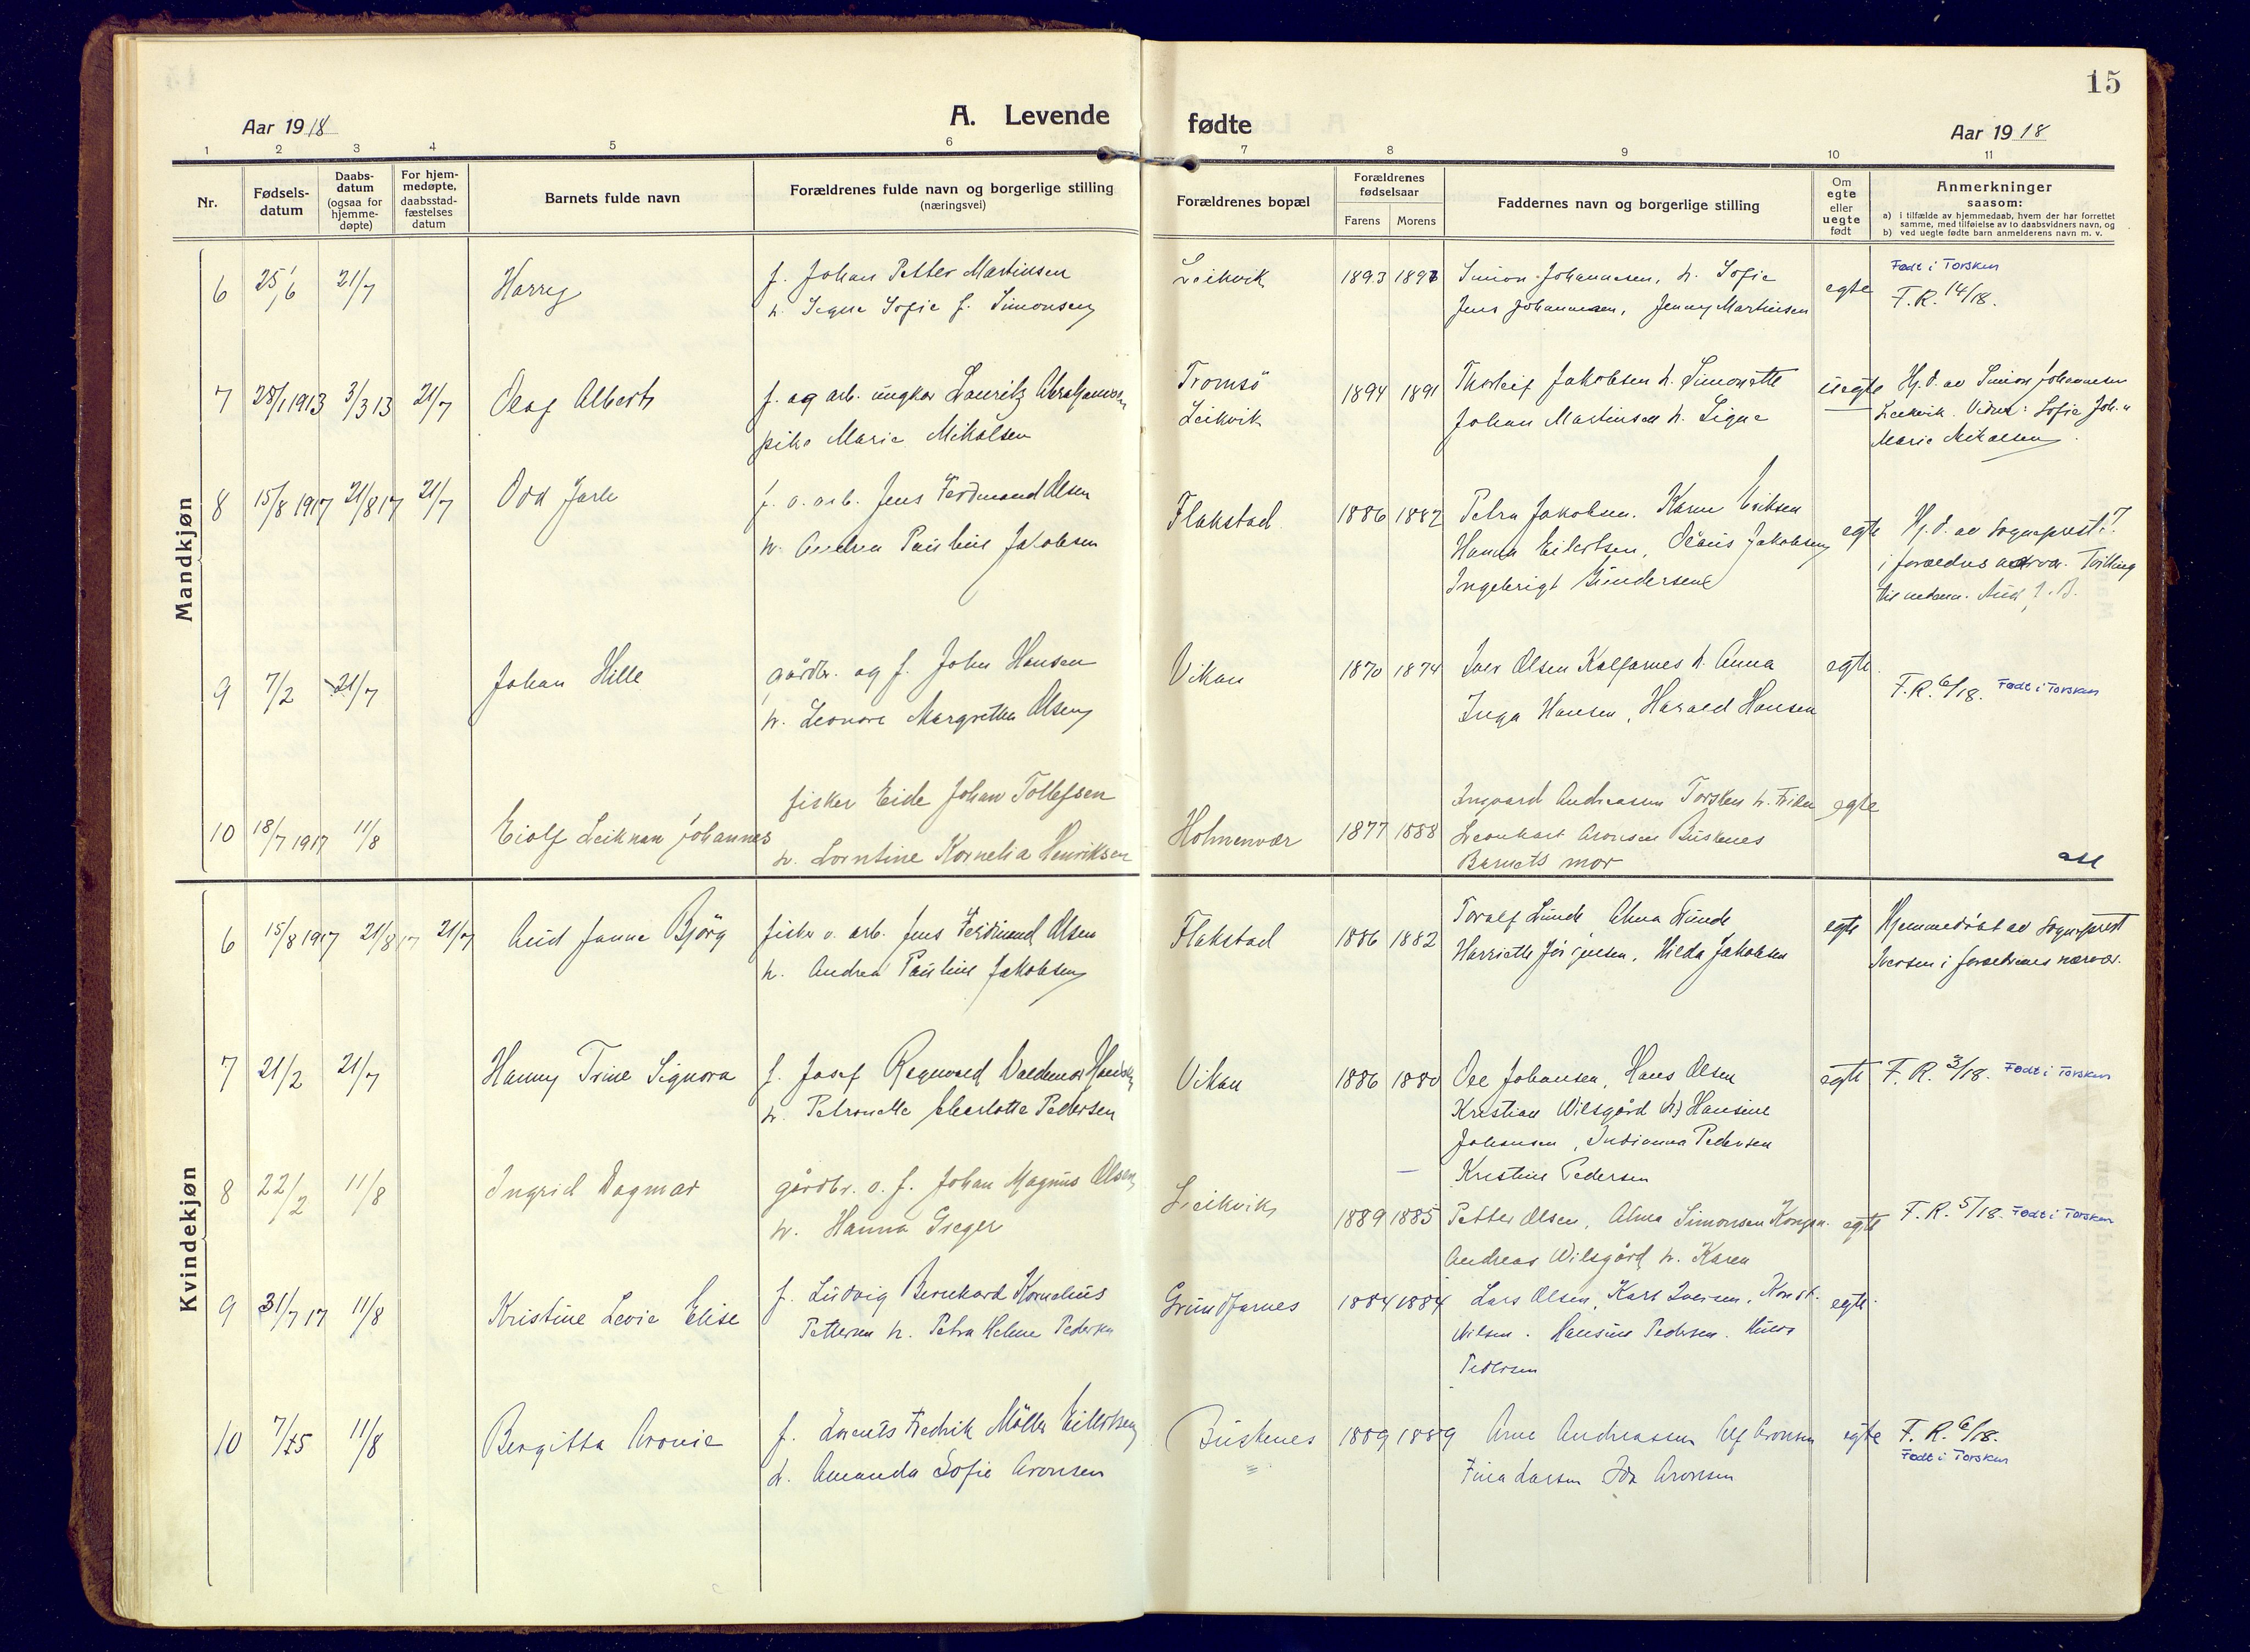 15
Aar 1918
A. Levende
fødte
Aar 1918
1 2 3 4 5 6 7 8 9 10 11
Nr.
Fødsels-
datum
Daabs-
datum
(ogsaa for
hjemme-
døpte)
For hjem-
medøpte,
daabsstad-
fæstelses
datum
Barnets fulde navn
Forældrenes fulde navn og borgerlige stilling
(næringsvei)
Forældrenes bopæl
Forældrenes
fødselsaar
Farens Morens
Faddernes navn og borgerlige stilling
Om
egte
eller
uegte
født
Anmerkninger
saasom:
a) i tilfælde av hjemmedaab, hvem der har forrettet
samme, med tilføielse av to daabsvidners navn, og
b) ved uegte fødte barn anmelderens navn m. v.
Mandkjøn
6 25/6 21/7 Harry f. Johan Petter Martinsen
h. Signe Sofie f. Simonsen
Leikvik 1893 1897 Simon Johannesen, h. Sofie
Jens Johannesen, Jenny Martinsen
egte
Født i Torsken
F.R. 14/18.
7 28/1 1913 3/3 13 21/7 Olaf Albert f. og arb. ungkar Lauritz Abrahamsen
pike Marie Mikalsen
Tromsö
Leikvik
1894 1891 Thorleif Jakobsen h. Simonette
Johan Martinsen h. Signe
uegte
Hj.d. av Simon Johannesen
Leikvik. Vidner: Sofie Joh.
Marie Mikalsen.
8 15/8 1917 21/8 17 21/7 Odd Jarle f. o. arb. Jens Ferdinand Olsen
h. Andrea Pauline Jakobsen
Flakstad 1886 1882 Petra Jakobsen. Karen Eriksen
Hanna Eilertsen, Jakobsen
Ingebrigt Gundersen
egte
Hj.d. av Sogneprest I.
i foreldres nærvær. Tvilling
til nedenn. Aud J. B.
9 7/2 21/7 Johan Hille gårdbr. og f. John Hansen
h. Leonore Margrethe Olsen
Vikan 1870 1874 Iver Olsen Kalfarnes h. Anna
Inga Hansen, Harald Hansen
egte.
F.R. 6/18. Født i Torsken
10 18/7 1917 11/8 Eiolf Leiknan Johannes fisker Eide Johan Tollefsen
h. Lorntine Kornelia Henriksen
Holmenvær 1877 1888 Ingvard Andreasen Torsken h.
Leonhart Aronsen Buskenes
Barnets mor
egte
Kvindekjøn
6 15/8 1917 21/8 17 21/7 Aud Janna Bjørg fisker o. arb. Jens Ferdinand Olsen
h. Andrea Pauline Jakobsen
Flakstad 1886 1882 Toralf Lunde Alma Lunde
Harriette Jörgensen, Hilda Jakobsen
egte
Hjemmedöbt av Sogneprest
Iversen i foreldrenes nærvær.
7 21/2 21/7 Hanny Trine Signora f. Josef Regnvald Valdemar
h. Petronelle Charlotte Pedersen
Vikan 1886 1880 Ole Johansen, Hans Olsen
Kristian Wilsgård (h) Hansine
Johansen, Indianna Pedersen
Kristine Pedersen
egte F.R. 3/18. Født i Torsken
8 22/2 11/8 Ingrid Dagmar gårdbr. o. f. Johan Magnus Olsen
h. Hanna Greger
Leikvik 1889 1885 Petter Olsen, Alma Simonsen
Andreas Wilsgård h. Karen
egte F.R. 5/18. Født i Torsken
9 31/7 17 11/8 Kristine Levie Elise f. Ludvig Bernhard Kornelius
Pettersen h. Petra Helene Pedersen
Grundfarnes 1884 1884 Lars Olsen, Karl Iversen, Konst.
Nilsen. Hansine Pedersen. Hulda
Pedersen
egte.
10 7/5 11/8 Bergitta Aronie f. Lorents Fredrik Möller Eilertsen
h. Amanda Sofie Aronsen
Buskenes 1889 1889 Arne Andreassen Alf Aronsen
Fina Larsen Ida Aronsen
egte F.R. 6/18.
Født i Torsken